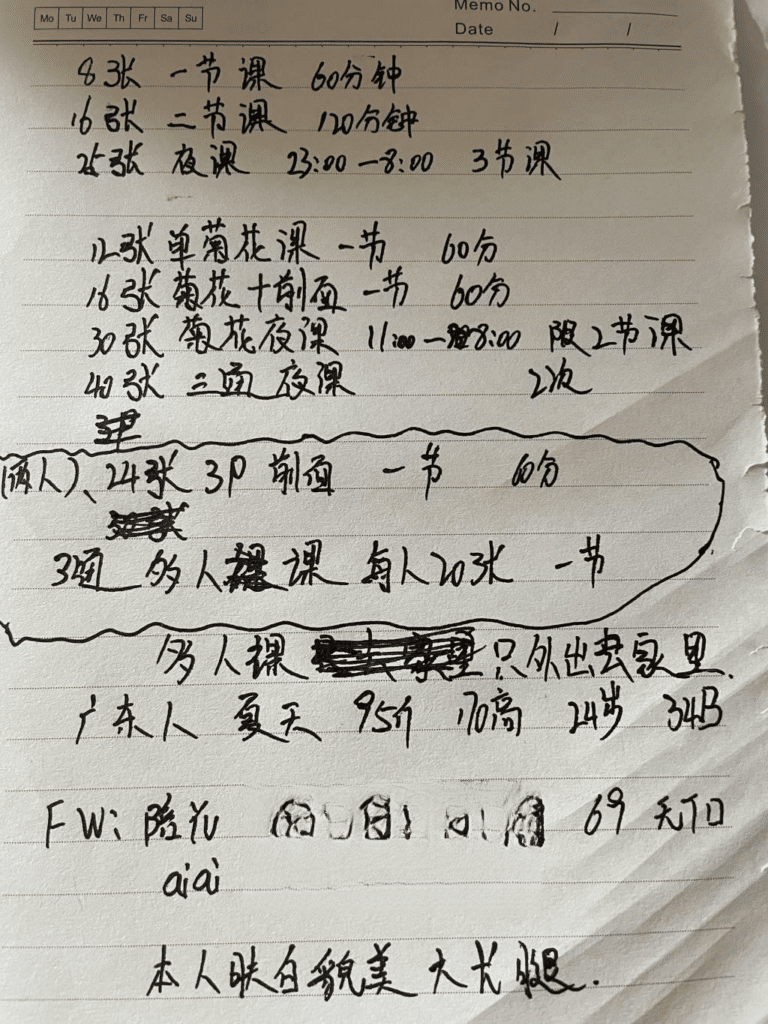 Mo Tu We Th Fr Sa Su
Memo No.
Date / /
8张 一节课 60分钟
16张 二节课 120分钟
25张 夜课 23:00—8:00 3节课
12张 单菊花课 一节 60分
16张 菊花十前面 一节 60分
30张 菊花夜课 11:00—8:00 限2节课
40张 三通 夜课 2次
(两人)、24张 3P 前面 一节 60分
3通 多人课 每人20张 一节
多人课 只外出去家里.
广东人 夏天 95斤 170高 24岁 34B
FW: 陪 69
aiai
本人肤白貌美 大长腿.